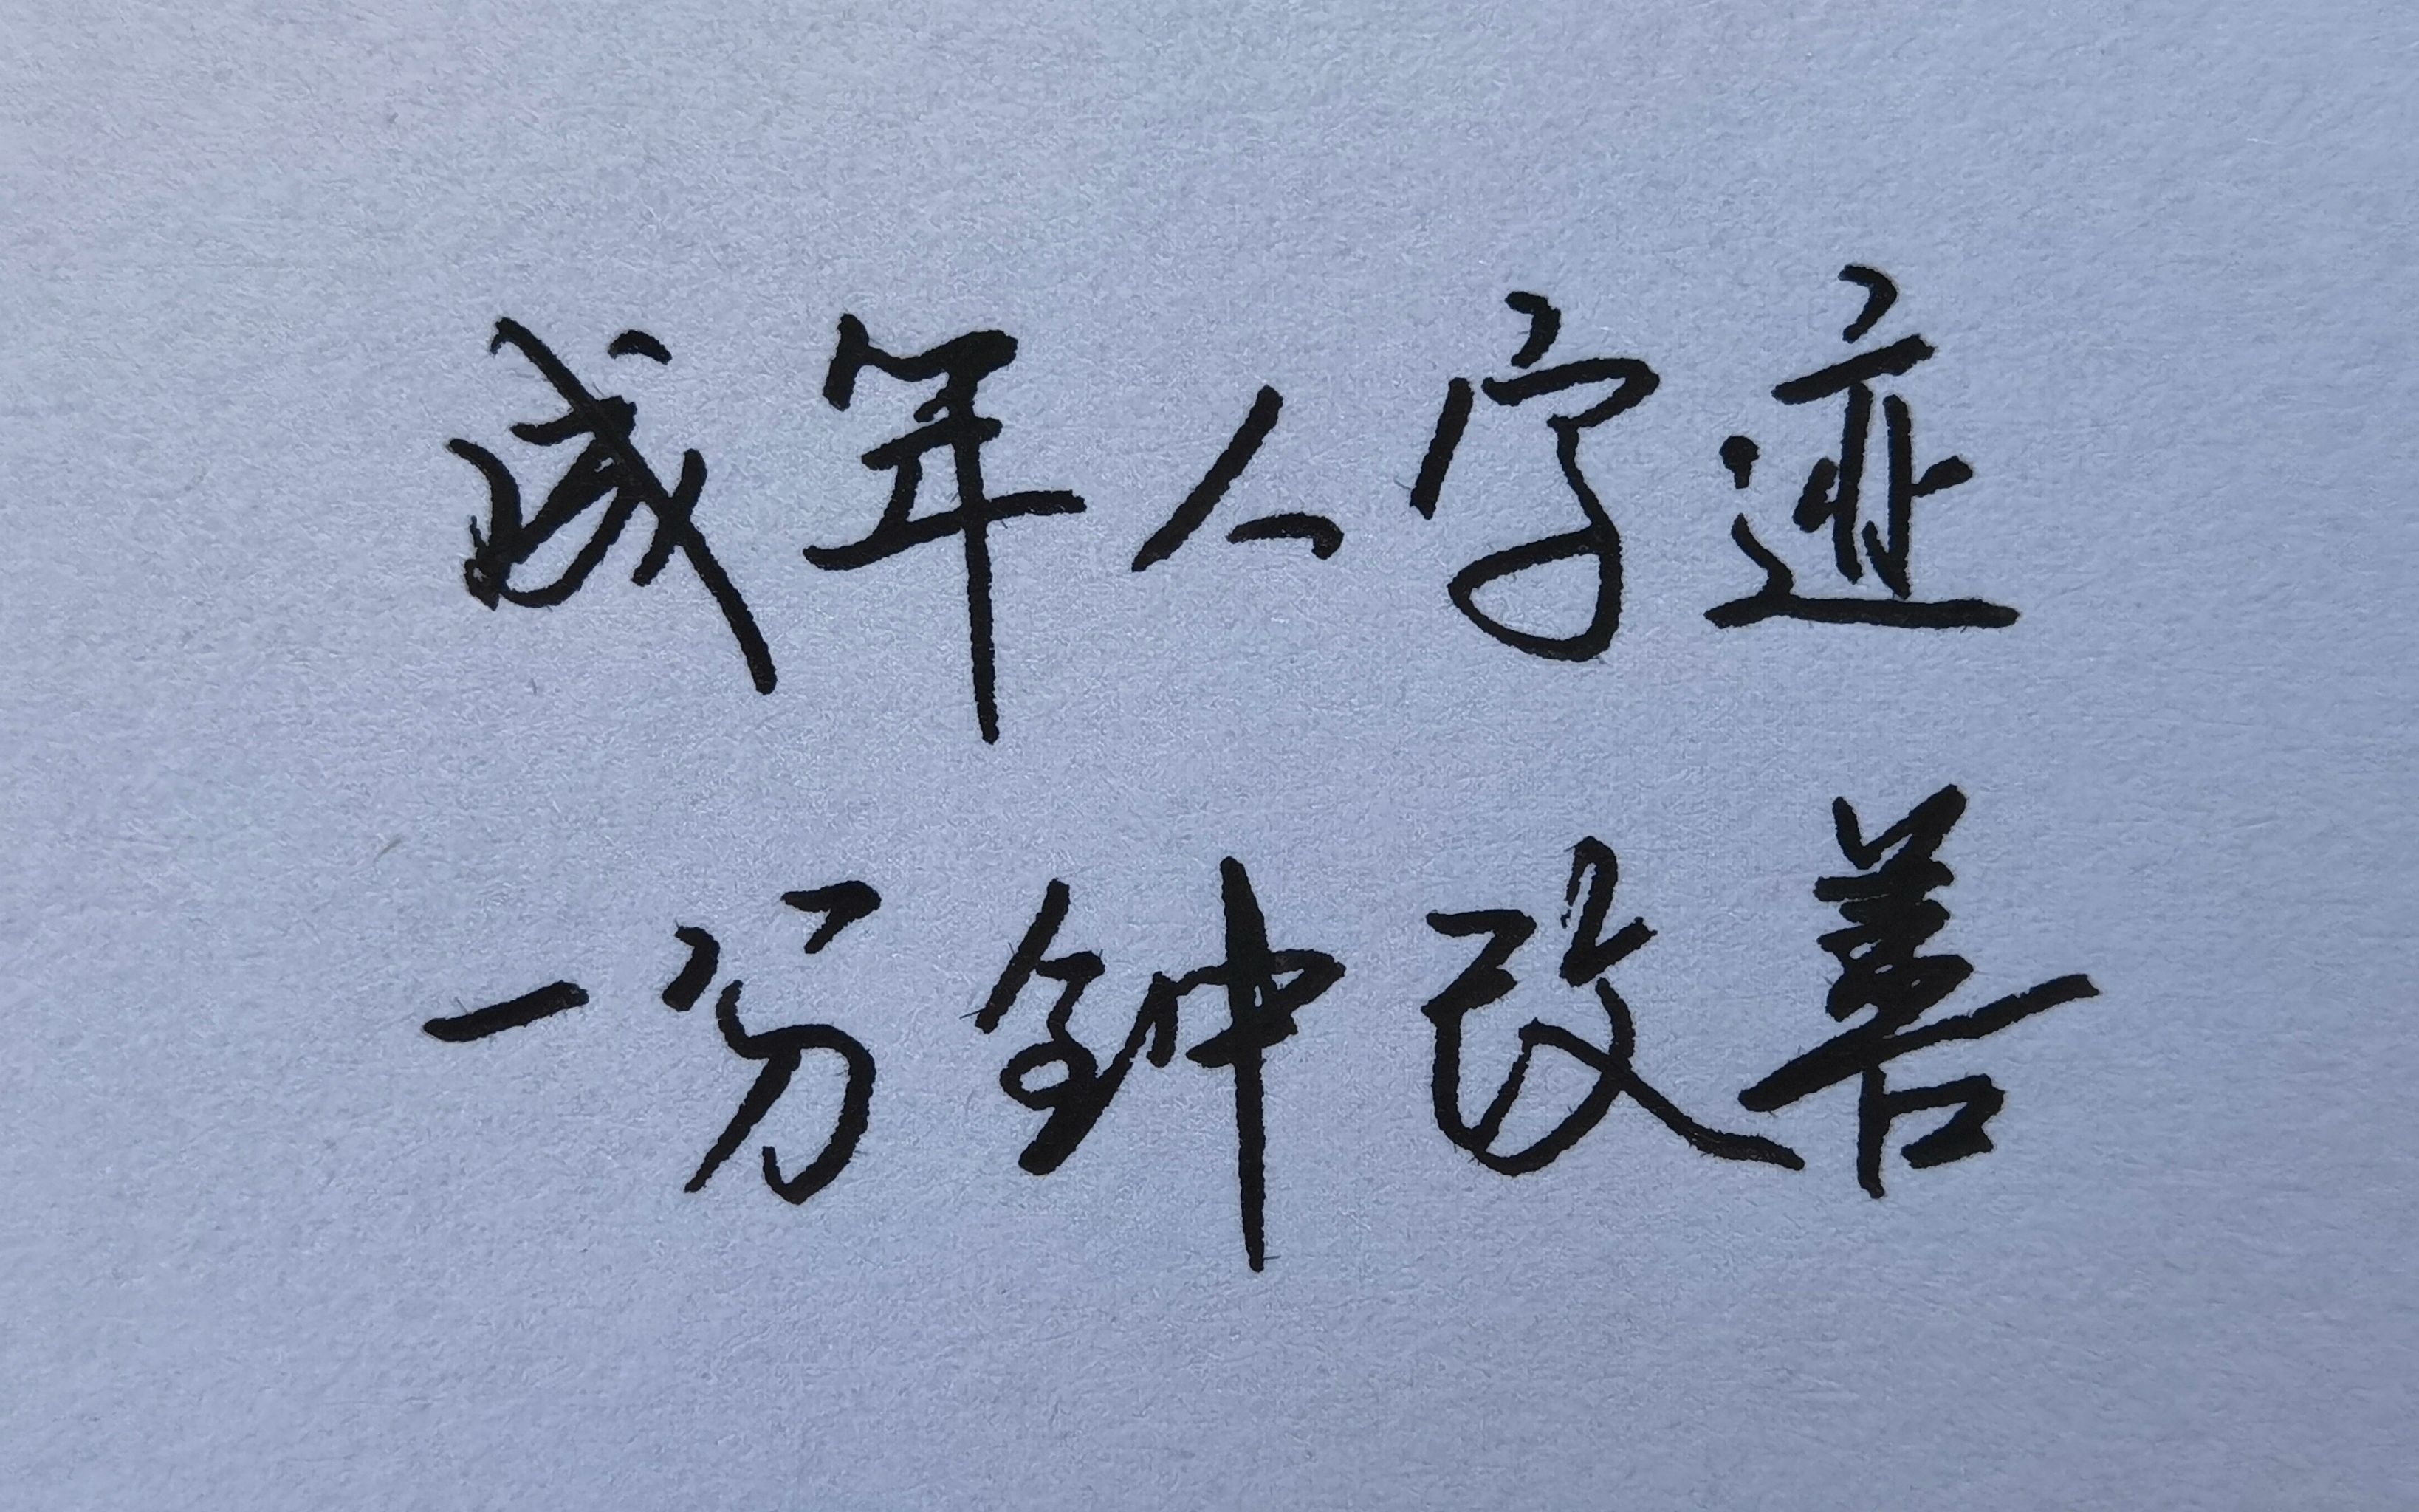 成年人字迹
一分钟改善